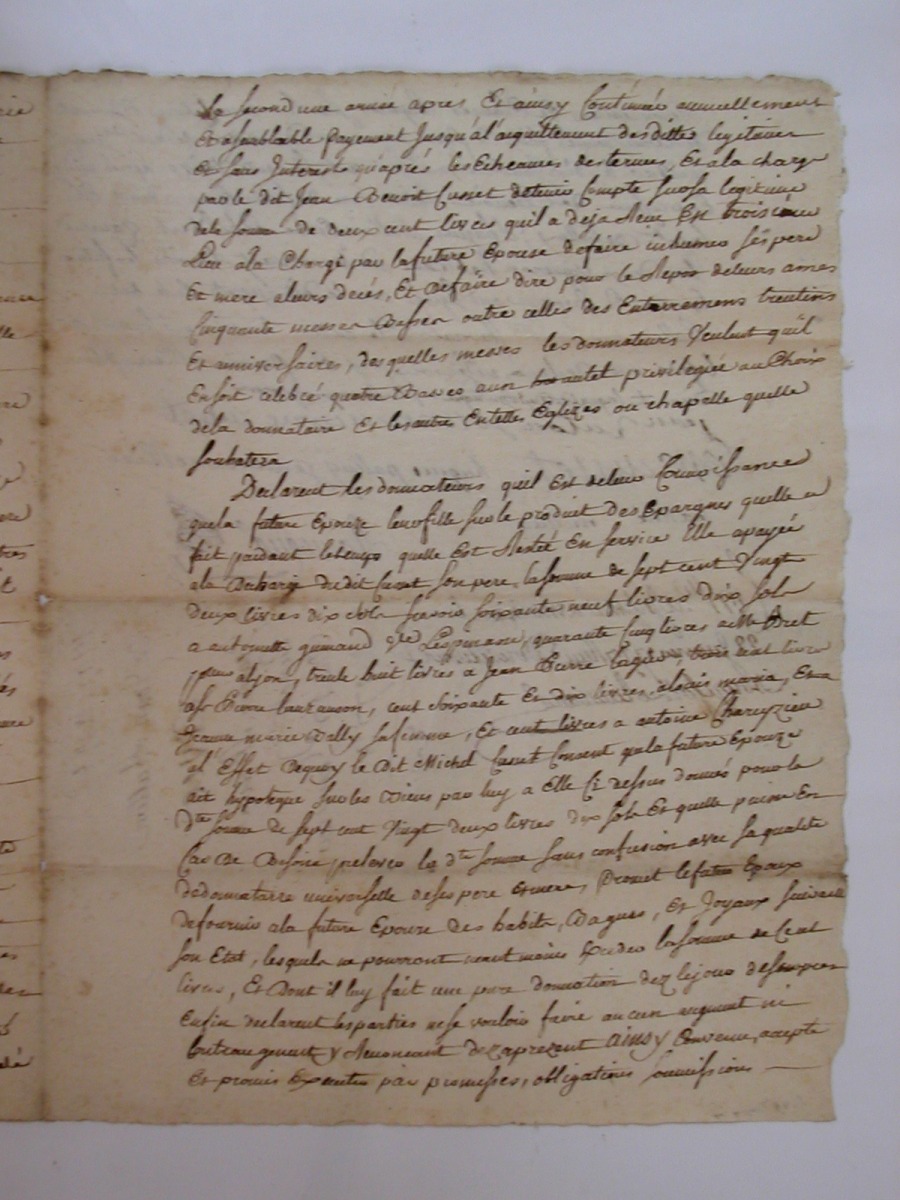 Le second une année apres Et ainsy Continuer annuellement
Et a semblable payement Jusqu'a l'aquittement des dittes legitimes
Et sans Interest qu'aprés les Echeances des termes, Et a la charge
par le dit Jean Benoit Cusset de tenir Compte sur sa legitime
de la somme de deux cent livres qu'il a deja Receu Et troisième
Lieu a la Charge par la future Epouse de faire inhumer ses pere
Et mere a leurs decés, Et de faire dire pour le Repos de leurs ames
Cinquante messes Basses outre celles des Enterremens trentins
Et anniversaires, desquelles messes les donnateurs Veulent qu'il
En soit celebré quatre a un autel privilegiée au Choix
de la donnataire Et les autres En telles Eglizes ou chapelle quelle
souhatera
Declarent les donnateurs qu'il Est de leur Connoissance
que la future Epouze leur fille sur le produit des Epargnes quelle a
fait pandant le temps quelle Est Resté En service Elle a payée
a la decharge du dit Cusset son pere la somme de sept cent Vingt
deux livres dix sols scavoir soixante neuf livres dix sols
a antoinette gimaud Lespinasse, quarante cinq livres a Mr Bret
de lyon, trente huit livres a Jean Pierre, trois cent livres
a Sr Pierre, cent soixante Et dix livres a, Et a
Jeanne marie sa femme, Et cent livres a antoine
a l'Effet Dequoy le Dit Michel Cusset Consent que la future Epouze
ait hypoteque sur les Biens par luy a Elle Ci dessus donnés pour la
Dte somme de sept cent Vingt deux livres dix sols Et quelle puisse En
Cas De Besoin prelever la dte somme sans confusion avec sa qualité
de donnataire universelle de ses pere Et mere, Promet le futur Epoux
de fournir a la future Epouze des habits, Bagues, Et Joyaux suivant
son Etat, lesquels ne pourront neantmoins Exceder la somme de Cent
livres, Et Dont il luy fait une pure donnation
Enfin declarent les parties ne se vouloir faire aucun augment ni
contreaugment y Renoncant dez a prezent ainsy Convenu, accepté
Et promis Executer par promesses, obligations soumissions